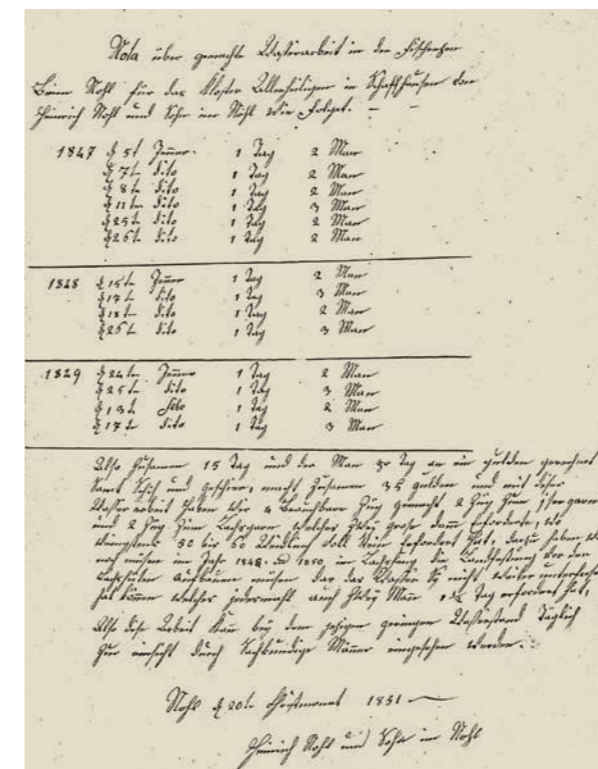 Nota über gemachte Wasserarbeit in den Fischenzen
Beim Nohl für das Kloster Allerheiligen in Schaffhausen von
Heinrich Nohl und Sohn im Nohl wie Folget. — —
1847 d 5t Jenner. 1 Tag 2 Man
d 7t dito 1 Tag 2 Man
d 8t dito 1 Tag 2 Man
d 11t dito 1 Tag 3 Man
d 25t dito 1 Tag 2 Man
d 26t dito 1 Tag 2 Man
1848 d 15t Jenner 1 Tag 2 Man
d 17t dito 1 Tag 3 Man
d 18t dito 1 Tag 2 Man
d 25t dito 1 Tag 3 Man
1849 d 24t Jenner 1 Tag 2 Man
d 25t dito 1 Tag 3 Man
d 13t Febr 1 Tag 2 Man
d 17t dito 1 Tag 3 Man
Also Zusamen 15 Tag und der Man pr Tag an ein gulden gerechnet
Samt Schif und geschier, macht Zusamen 35 gulden und mit diser
Wasser arbeit haben wir 4 brauchbare Züg gemacht 2 Züg Zum garn
und 2 Züg Zum Lachsgarn welches Zwey große erforderte, wo
wenigstens 50 bis 60 Weidling voll Stein erfordert hat, dazu haben wir
noch müsen im Jahr 1848 und 1850 im Lachsfang die Landfestung vor den
aufbauen müsen das das Wasser Sy nicht weiter
hat können welches jedesmahl auch Zwey Man 1½ Tag erfordert hat,
Also dise Arbeit kan bey dem jezigen geringen Wasserstand Täglich
Zur einsicht durch Sachkundige Mäner eingesehen werden.
Nohl d 20t Christmonat 1851 —
Heinrich Nohl und Sohn im Nohl